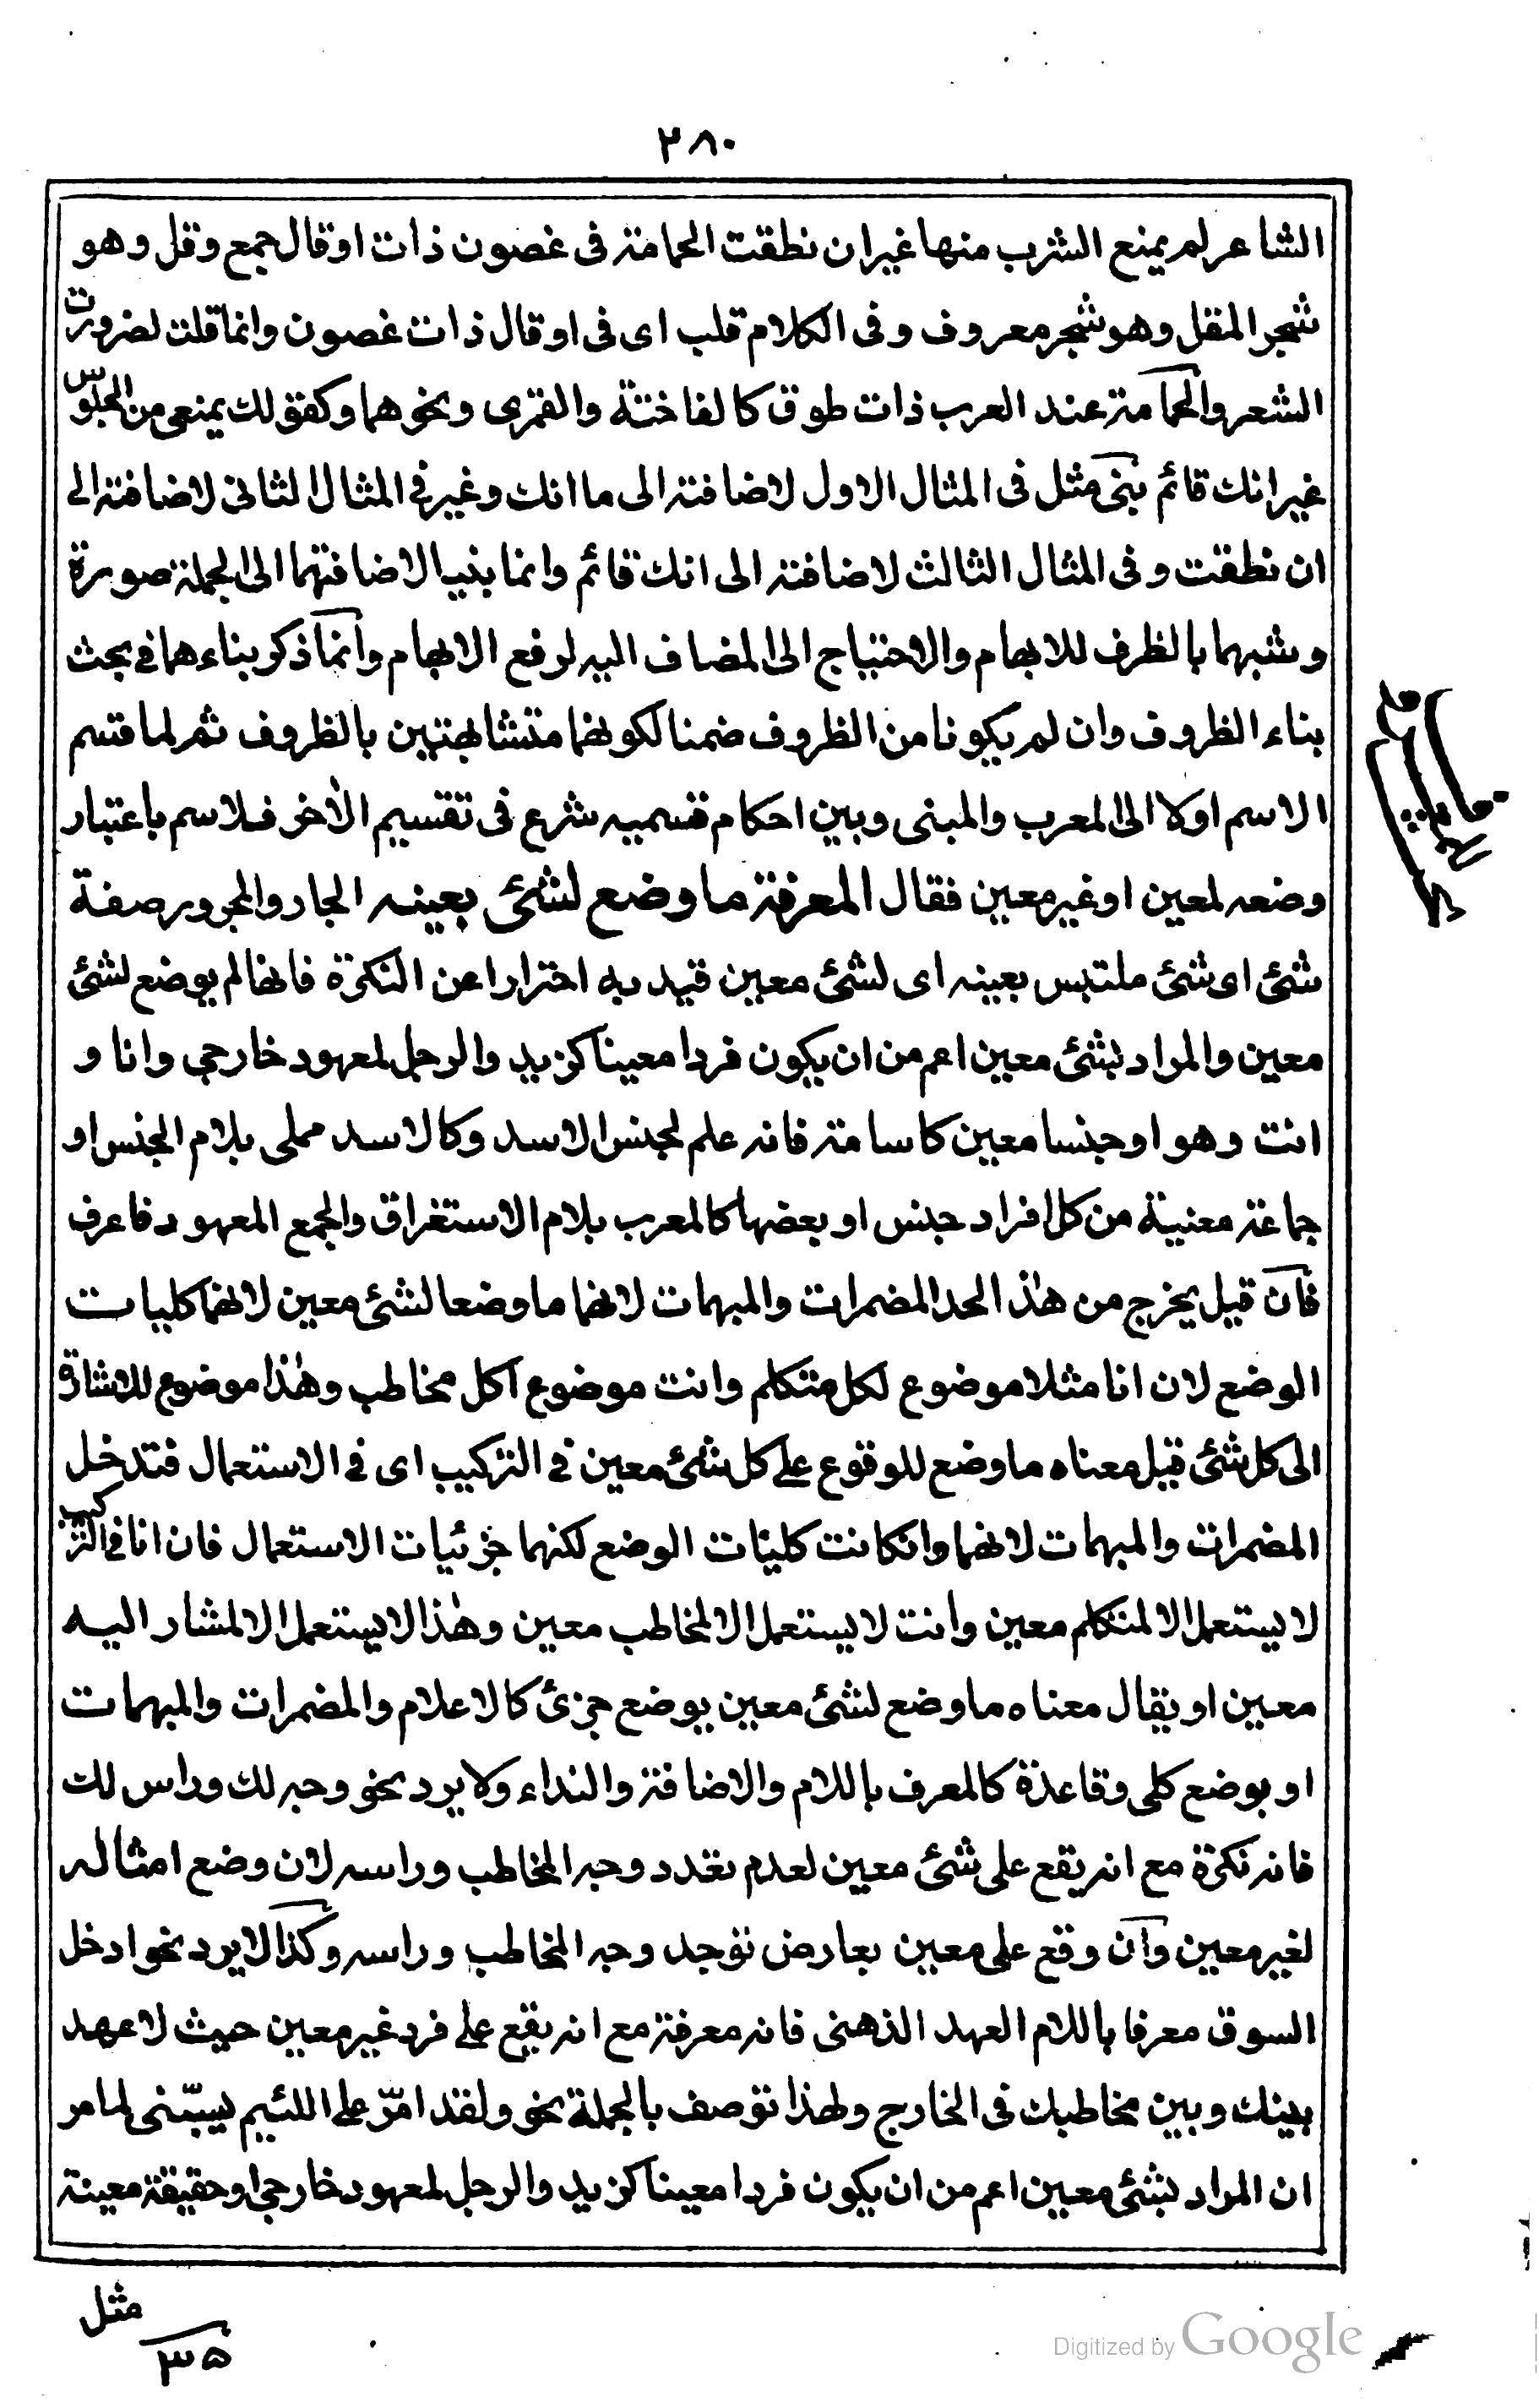 ٢٨٠
الشاعر لم يمنع الشرب منها غير ان نطقت الحمامة فى غصون ذات اوقال جمع وقل وهو
شجر المقل وهو شجر معروف وفى الكلام قلب اى فى اوقال ذات غصون وانما قلت لضرورت
الشعر والحمامة عند العرب ذات طوق كالفاختة والقمرى ونحوهما وكقولك يمنعى من الجلوس
غير انك قائم بنى مثل فى المثال الاول لاضافته الى ما انك وغير فى المثال الثانى لاضافته الى
ان نطقت وفى المثال الثالث لاضافته الى انك قائم وانما بنيا لاضافتهما الى الجملة صورة
وشبهما بالظرف للابهام والاحتياج الى المضاف اليه لرفع الابهام وانما ذكر بناءهما فى بحث
بناء الظروف وان لم يكونا من الظروف ضمنا لكونهما متشابهتين بالظروف ثم لما قسم
الاسم اولا الى المعرب والمبنى وبين احكام قسميه شرع فى تقسيم الأخر فلاسم باعتبار
وضعه لمعين او غير معين فقال المعرفة ما وضع لشئ بعينه الجار والمجرور صفة
شئ اى شئ ملتبس بعينه اى لشئ معين قيد به احترازا عن النكرة فانها لم يوضع لشئ
معين والمراد بشئ معين اعم من ان يكون فردا معينا كزيد والرجل لمعهود خارجى وانا و
انت وهو او جنسا معين كاسامة فانه علم لجنس الاسد وكالاسد محلى بلام الجنس او
جماعة معنية من كل افراد جنس او بعضها كالمعرب بلام الاستغراق والجمع المعهود فاعرف
فان قيل يخرج من هٰذ الحد المضمرات والمبهمات لانهما ما وضعا لشئ معين لانهما كليات
الوضع لان انا مثلا موضوع لكل متكلم وانت موضوع لكل مخاطب وهٰذا موضوع للاشارة
الى كل شئ قيل معناه ما وضع للوقوع على كل شئ معين فى التركيب اى فى الاستعمال فتدخل
المضمرات والمبهمات لانهما وانكانت كليات الوضع لكنهما جزئيات الاستعمال فان انا فى التركيب
لا يستعمل الا لمتكلم معين وانت لا يستعمل الا لمخاطب معين وهٰذا لا يستعمل الا لمشار اليه
معين او يقال معناه ما وضع لشئ معين بوضع جزئ كالاعلام والمضمرات والمبهمات
او بوضع كلى وقاعدة كالمعرف باللام والاضافة والنداء ولا يرد نحو وجه لك وراس لك
فانه نكرة مع انه يقع على شئ معين لعدم تعدد وجه المخاطب وراسه لان وضع امثاله
لغير معين وان وقع على معين بعارض توجد وجه المخاطب وراسه وكذا لا يرد نحو ادخل
السوق معرفا باللام العهد الذهنى فانه معرفة مع انه يقع على فرد غير معين حيث لا عهد
بينك وبين مخاطبك فى الخارج ولهذا توصف بالجملة نحو ولقد امرّ على اللئيم يسبّنى لما مر
ان المراد بشئ معين اعم من ان يكون فردا معينا كزيد والرجل لمعهود خارجى او حقيقة معينة
مثل
٣٥
Digitized by Google